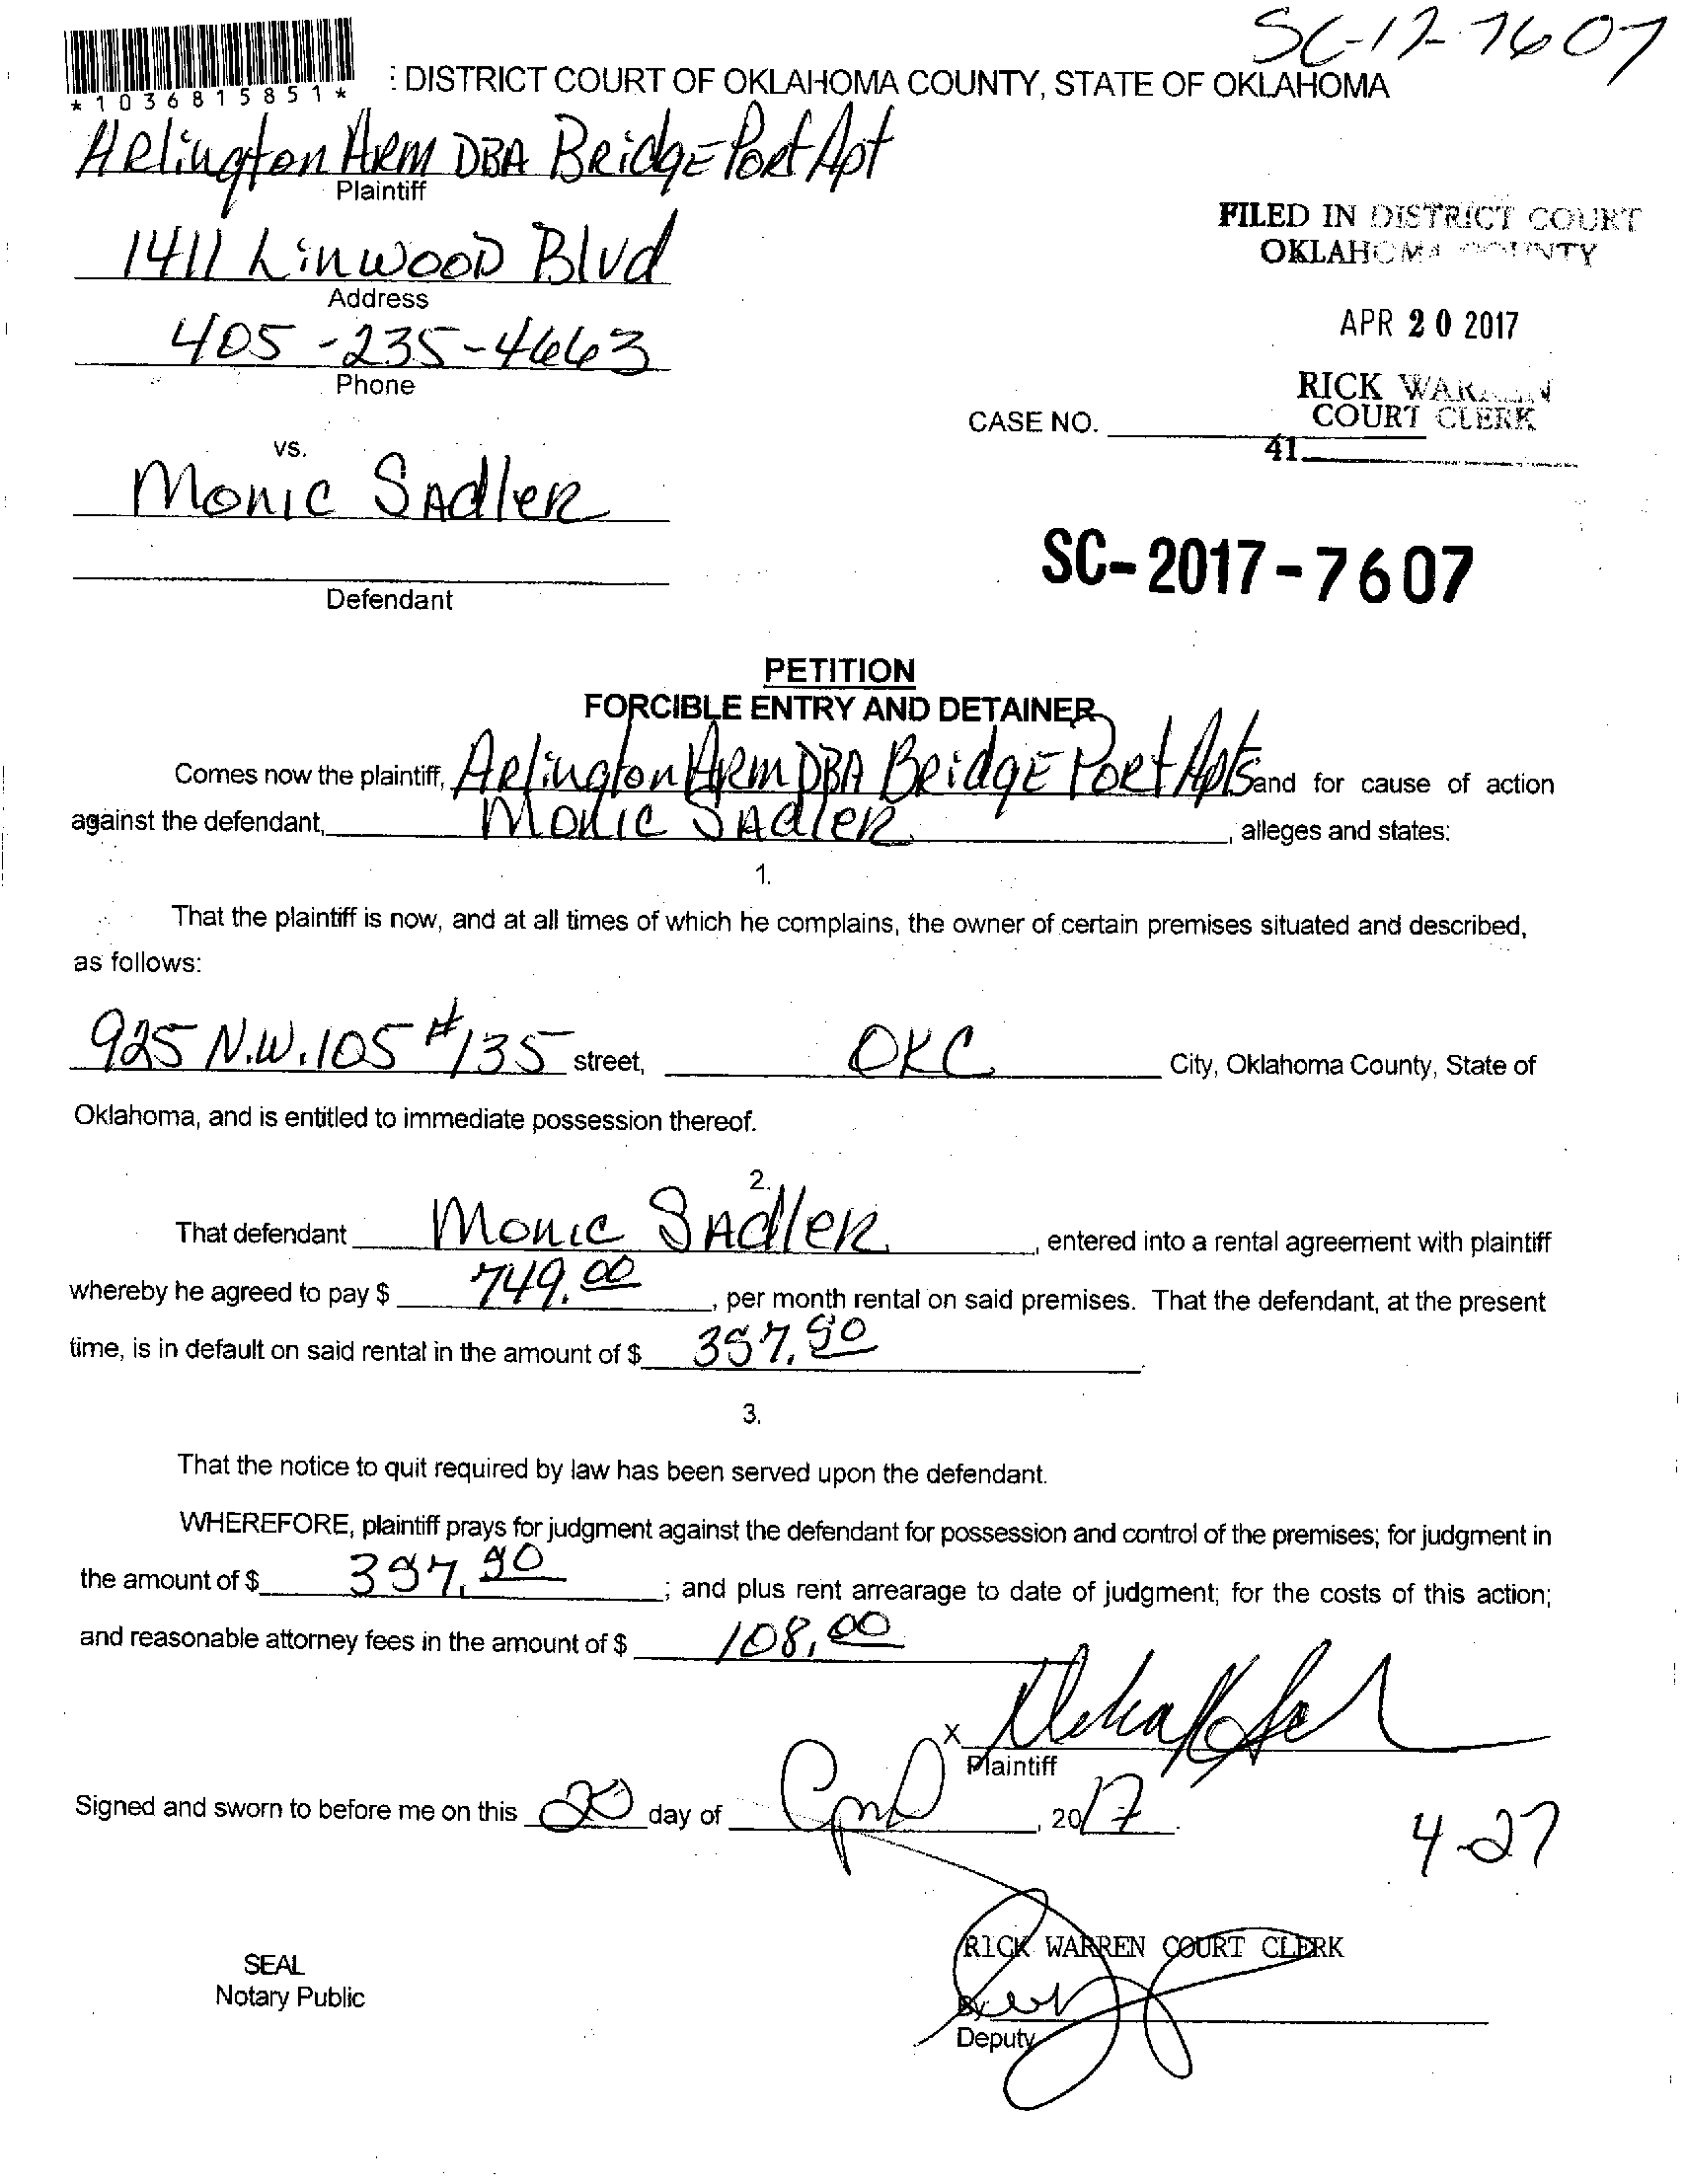 SC-17-7607
*1036815851*
: DISTRICT COURT OF OKLAHOMA COUNTY, STATE OF OKLAHOMA
Arlington Arm DBA BridgePort Apt
Plaintiff
FILED IN DISTRICT COURT
OKLAHOMA COUNTY
1411 Linwood Blvd
Address
APR 20 2017
405-235-4663
Phone
RICK WARREN
COURT CLERK
CASE NO.
41
vs.
Monic Sadler
SC-2017-7607
Defendant
PETITION
FORCIBLE ENTRY AND DETAINER
Comes now the plaintiff, Arlington Arm DBA BridgePort Apts and for cause of action
against the defendant, Monic Sadler, alleges and states:
1.
That the plaintiff is now, and at all times of which he complains, the owner of certain premises situated and described,
as follows:
925 N.W. 105 #135 street, OKC City, Oklahoma County, State of
Oklahoma, and is entitled to immediate possession thereof.
2.
That defendant Monic Sadler, entered into a rental agreement with plaintiff
whereby he agreed to pay $ 749.00, per month rental on said premises. That the defendant, at the present
time, is in default on said rental in the amount of $
3.
That the notice to quit required by law has been served upon the defendant.
WHEREFORE, plaintiff prays for judgment against the defendant for possession and control of the premises; for judgment in
the amount of $ ; and plus rent arrearage to date of judgment; for the costs of this action;
and reasonable attorney fees in the amount of $ 108.00
X
Plaintiff
Signed and sworn to before me on this 20 day of April, 2017.
4-27
RICK WARREN COURT CLERK
SEAL
Notary Public
By
Deputy